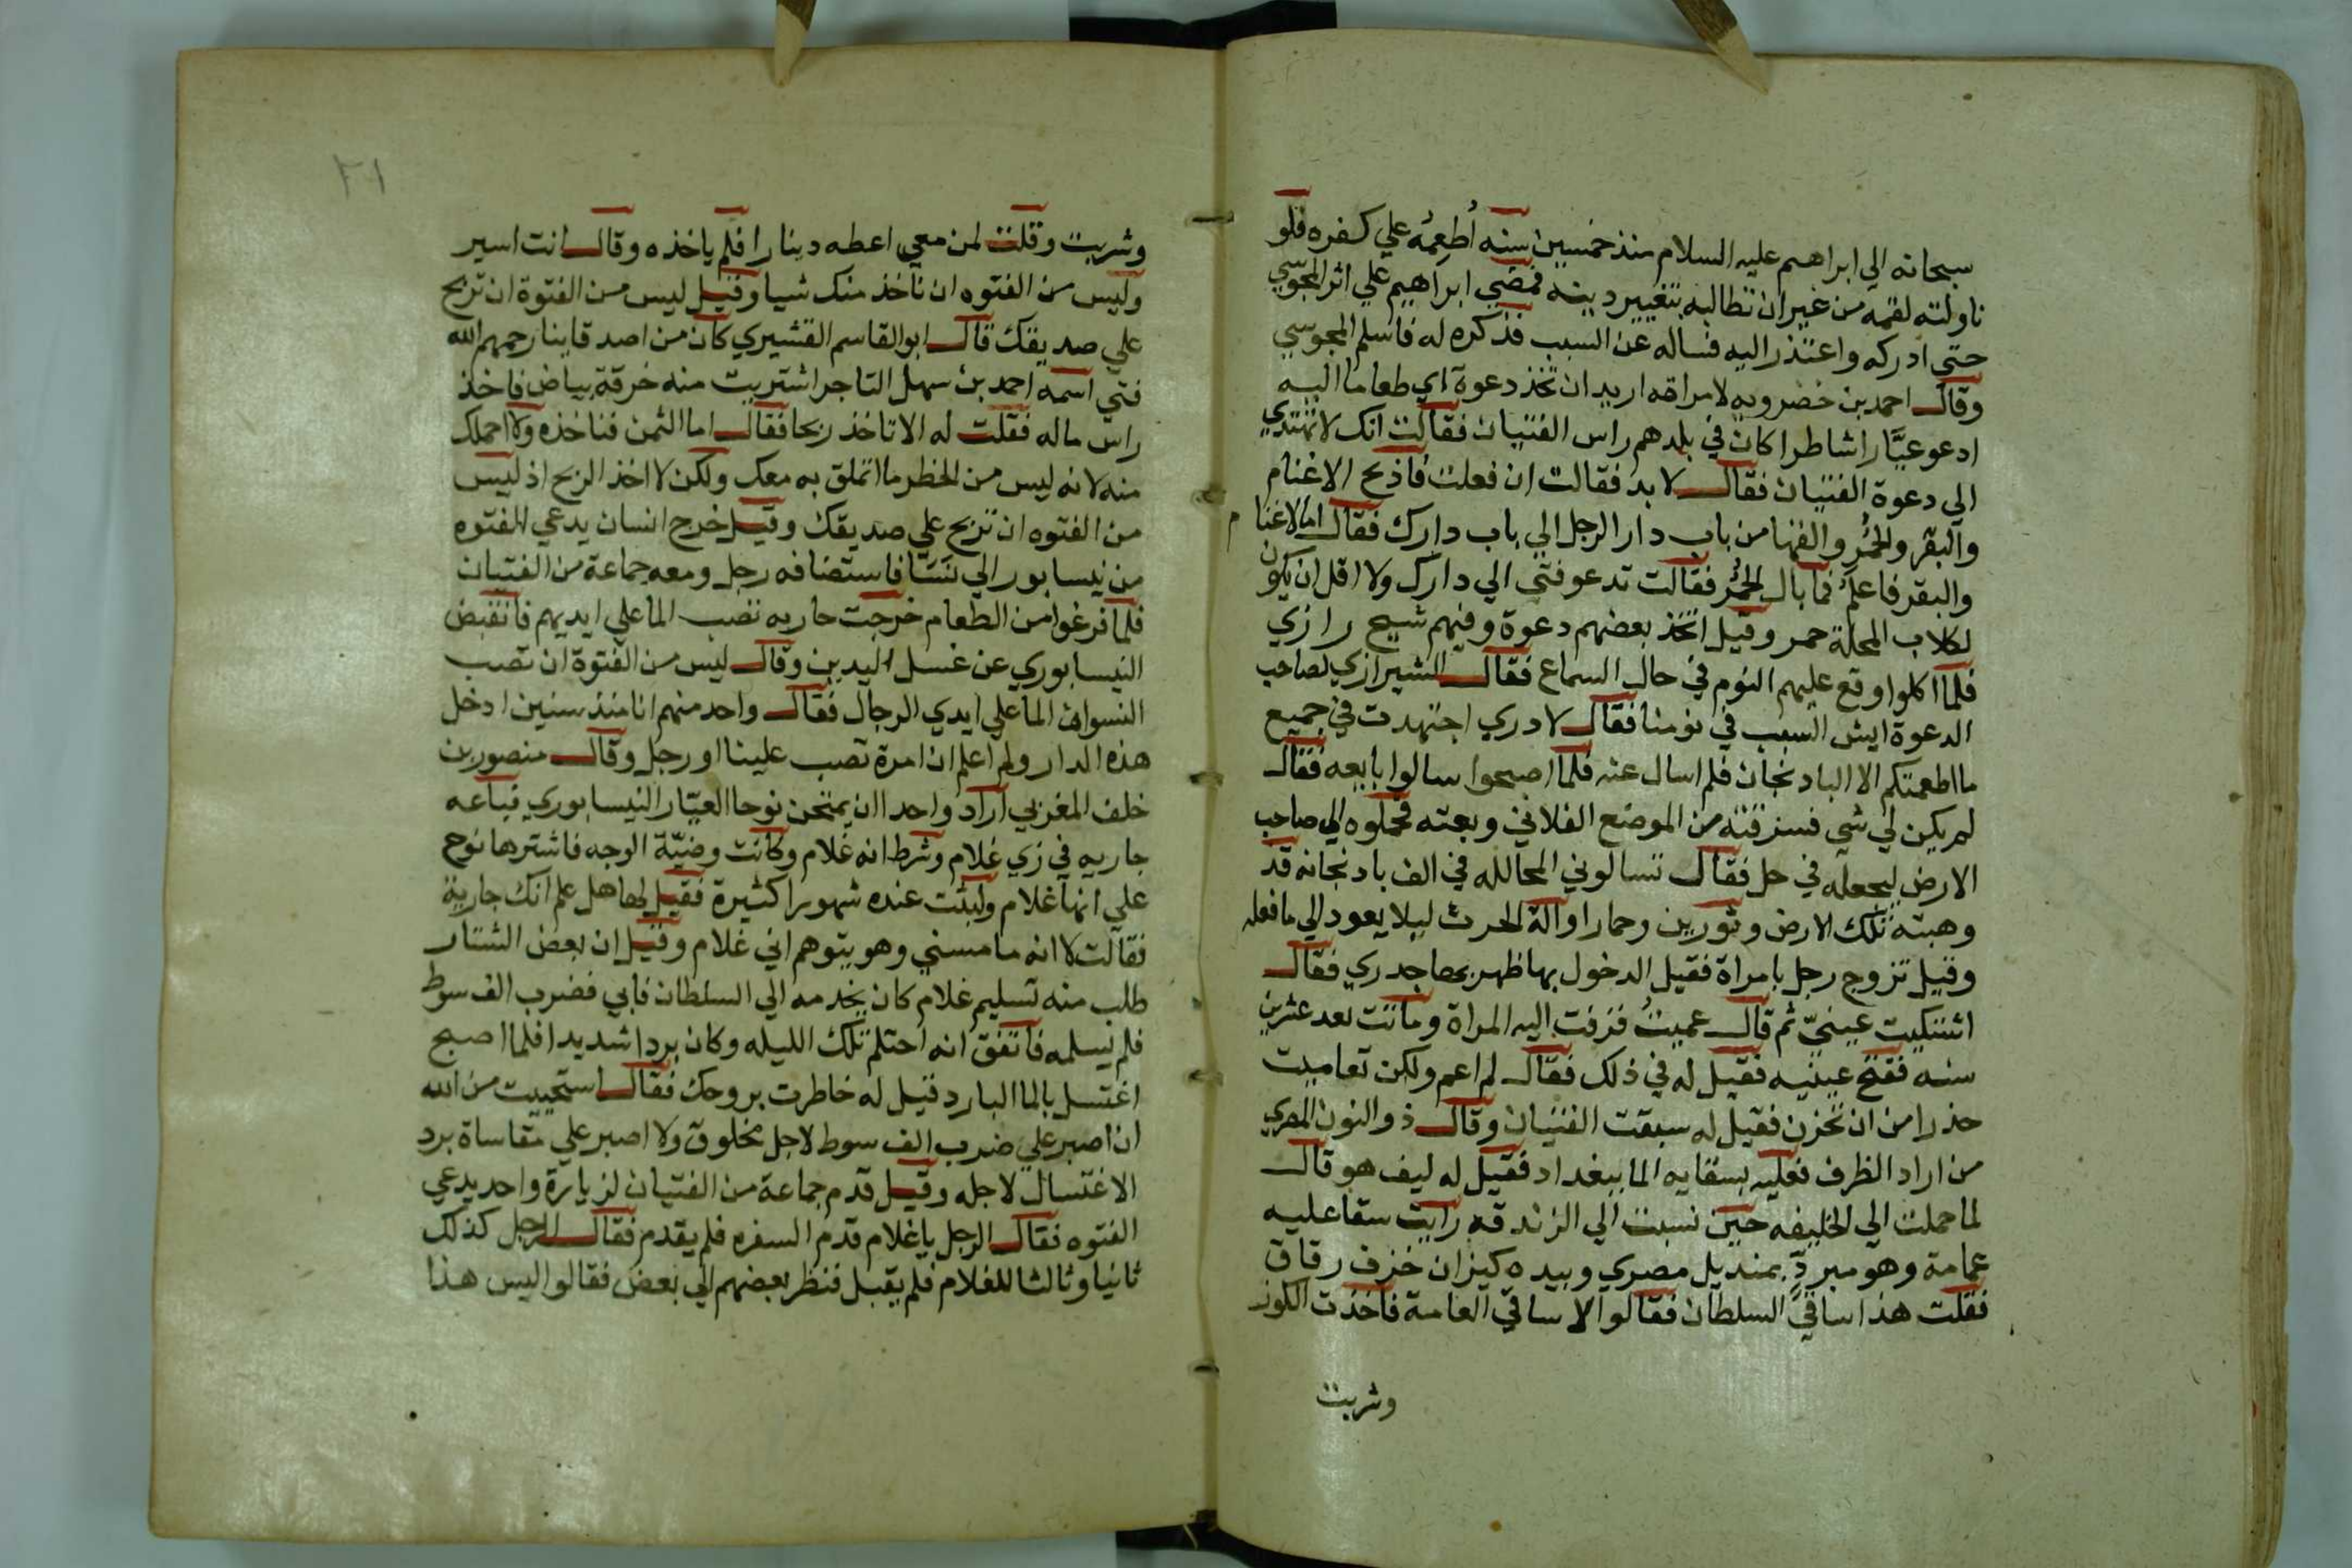 سبحانه الي ابراهيم عليه السلام منذ خمسين سنه أطعمُه علي كفره فلو
ناولته لقمه من غير ان تطالبه بتغيير دينه فمضي ابراهيم علي اثر المجوسي
حتي ادركه واعتذر اليه فساله عن السبب فذكره له فاسلم المجوسي
وقال احمد بن خضرويه لامراته اريد ان تخذ دعوة اي طعاما اليه
ادعو عيَّارا شاطرا كان في بلدهم راس الفتيان فقالت انك لا تهتدي
الي دعوة الفتيان فقال لا بد فقالت ان فعلت فاذبح الاغنام
والبقر والحُمر والقها من باب دار الرجل الي باب دارك فقال اما لاغنام
والبقر فاعلمُ فما بال الحُمُر فقالت تدعو فتي الي دارك ولا اقل ان يكون
لكلاب المحلة حمر وقيل اتخذ بعضهم دعوة وفيهم شيخ رازي
فلما اكلوا وقع عليهم النوم في حال السماع فقال الشيرازي لصاحب
الدعوة ايش السبب في نومنا فقال لا دري اجتهدت في جميع
ما اطعمتكم الا الباد نجان فلم اسال عنه فلما اصبحوا سالوا بايعه فقال
لم يكن لي شي فسرقته من الموضع الفلاني وبعته فحملوه الي صاحب
الارض ليجعله في حل فقال تسالوني المحالله في الف باد نجانه قد
وهبته تلك الارض وثورين وحمارا والة الحرث ليلا يعود الي ما فعله
وقيل تزوج رجل بامراة فقيل الدخول بها ظهر بها جدري فقال
اشتكيت عينيّ ثم قال عميتُ فزفت اليه المراة وماتت بعد عشرين
سنه ففتح عينيه فقيل له في ذلك فقال لم اعم ولكن تعاميت
حذرا من ان تحزن فقيل له سبقت الفتيان وقال ذو النون المصري
من اراد الظرف فعليه بسقايه الما ببغداد فقيل له ليف هو قال
لما حملت الي الخليفه حين نسبت الي الزندقه رايت سقا عليه
عمامة وهو مبردٍّ بمنديل مصري وبيده كيزان خزف رقاق
فقلت هذا ساقي السلطان فقالوا لا ساقي العامة فاخذت الكوز
وشربت
٢١
وشربت وقلت لمن معي اعطه دينارا فلم ياخذه وقال انت اسير
وليس من الفتوه ان ناخذ منك شيا وقيل ليس من الفتوة ان تربح
علي صديقك قال ابوالقاسم القشيري كان من اصدقاينا رحمهم الله
فتي اسمه احمد بن سهل التاجر اشتريت منه خرقة بياض فاخذ
راس ماله فقلت له الا تاخذ ربحا فقال اما الثمن فناخذه ولا احملك
منه لانه ليس من الخطر ما اتملق به معك ولكن لا اخذ الربح اذ ليس
من الفتوه ان تربح علي صديقك وقيل خرج انسان يدعي الفتوه
من نيسابور الي نَسَا فاستضافه رجل ومعه جماعة من الفتيان
فلما فرغوا من الطعام خرجت جاريه تصب الما علي ايديهم فانقبض
النيسابوري عن غسل اليدين وقال ليس من الفتوة ان تصب
النسوان الما علي ايدي الرجال فقال واحد منهم انا منذ سنين ادخل
هذه الدار ولم اعلم ان امرة تصب علينا او رجل وقال منصور بن
خلف المغربي اراد واحدا ان يمتحن نوحا العيّار النيسابوري فباعه
جاريه في زي غلام وشرط انه غلام وكانت وضيّة الوجه فاشترها نوح
علي انها غلام ولبثت عنده شهورا كثيرة فقيل لها هل علم انك جارية
فقالت لا انه ما مسني وهو يتوهم اني غلام وقيل ان بعض الشتار
طلب منه تسليم غلام كان يخدمه الي السلطان فابي فضرب الف سوط
فلم يسلمه فاتفق انه احتلم تلك الليله وكان بردا شديدا فلما اصبح
اغتسل بالما البارد فقيل له خاطرت بروحك فقال استحييت من الله
ان اصبر علي ضرب الف سوط لاجل مخلوق ولا اصبر علي مقاساة برد
الاغتسال لاجله وقيل قدم جماعة من الفتيان لزيارة واحد يدعي
الفتوه فقال الرجل يا غلام قدم السفره فلم يقدم فقال الرجل كذلك
ثانيا وثالثا للغلام فلم يقبل فنظر بعضهم الي بعض فقالوا ليس هذا